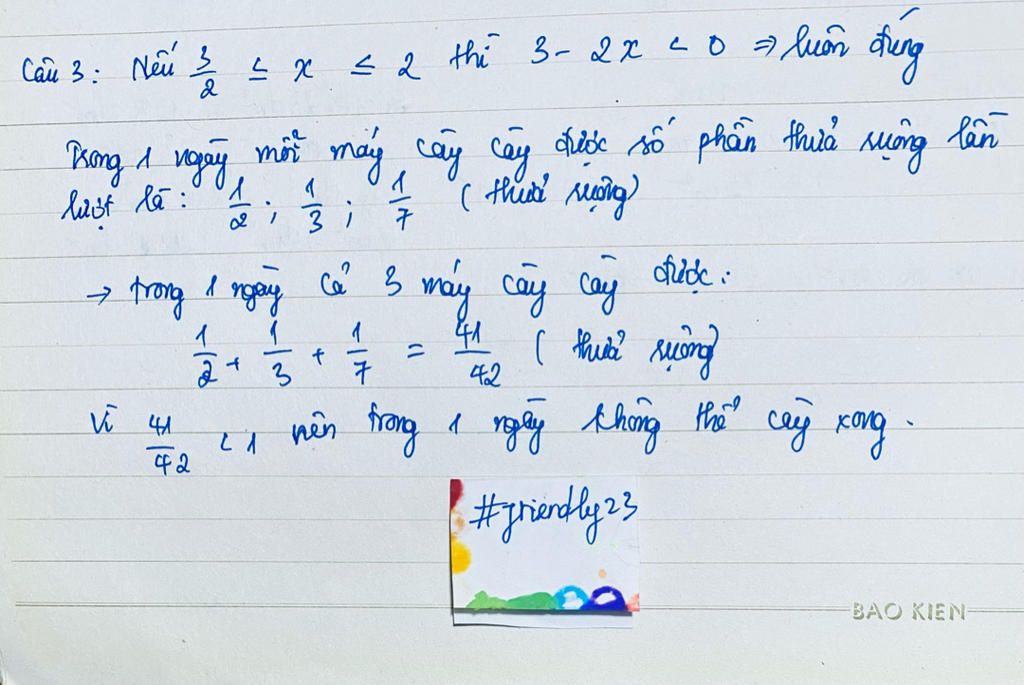 Câu 3: Nếu 3/2 ≤ x ≤ 2 thì 3 - 2x < 0 ⇒ luôn đúng
Trong 1 ngày mỗi máy cày cày được số phần thửa ruộng lần
lượt là: 1/2; 1/3; 1/7 (thửa ruộng)
→ trong 1 ngày cả 3 máy cày cày được:
1/2 + 1/3 + 1/7 = 41/42 (thửa ruộng)
Vì 41/42 < 1 nên trong 1 ngày không thể cày xong.
#friendly23
BAO KIEN